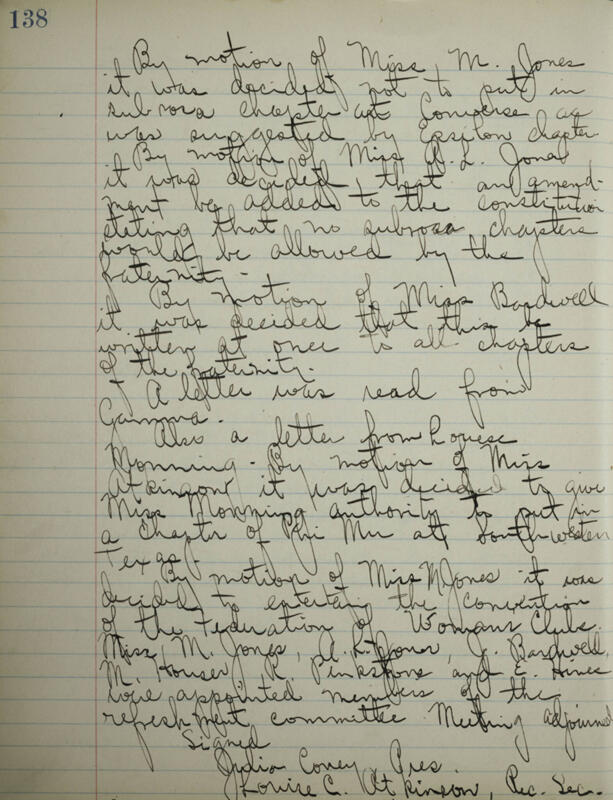 138
By motion of Miss M. Jones
it was decided not to put in
subrosa chapter at Converse as
was suggested by Epsilon chapter
By motion of Miss A. L. Jones
it was decided that an amend-
ment be added to the constitution
stating that no subrosa chapters
would be allowed by the
fraternity -
By motion of Miss Bardwell
it was decided that this be
written at once to all chapters
of the fraternity.
A letter was read from
Gamma.
Also a letter from Louese
Monning - By motion of Miss
Atkinson it was decided to give
Miss Monning authority to put in
a chapter of Phi Mu at Southwestern
Texas.
By motion of Miss M Jones it was
decided to entertain the Convention
of the Federation of Womans Clubs.
Miss M. Jones, A. L. Jones, J. Bardwell,
M. Houser, R. Pinkstone and E. Hines
were appointed members of the
refreshment committee Meeting adjourned
Signed
Lydia Coney, Pres.
Louise C. Atkinson, Rec. Sec.